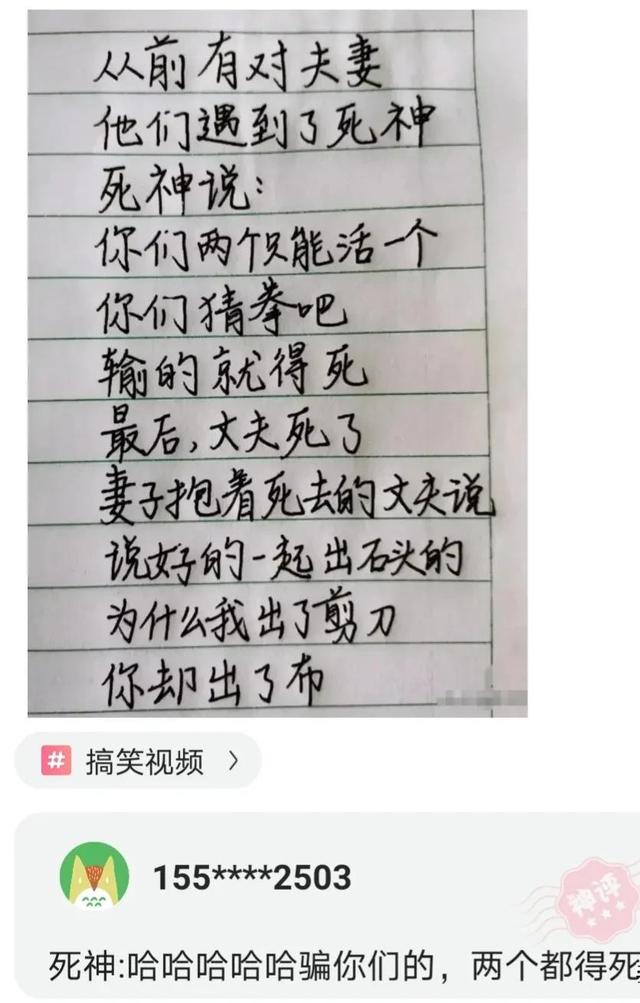 从前有对夫妻
他们遇到了死神
死神说:
你们两个只能活一个
你们猜拳吧
输的就得死
最后,丈夫死了
妻子抱着死去的丈夫说
说好的一起出石头的
为什么我出了剪刀
你却出了布
# 搞笑视频 >
155****2503
神评
死神:哈哈哈哈哈骗你们的，两个都得死